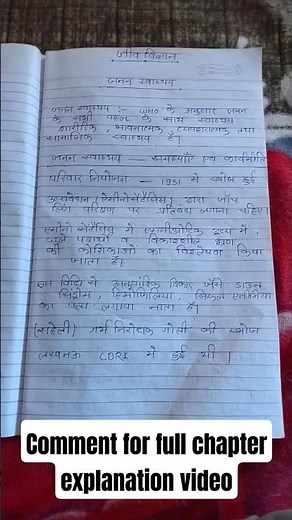 जीव विज्ञान
जनन स्वास्थ्य
जनन स्वास्थ्य :- WHO के अनुसार जनन
के सभी पहलू के साथ स्वास्थ्य
शारीरिक, भावनात्मक, व्यवहारात्मक तथा
सामाजिक स्वास्थ्य है।
जनन स्वास्थ्य — समस्याएँ एवं कार्यनीति
परिवार नियोजन - 1951 में खोज हुई
उल्ववेधन (ऐमीनोसेंटैसिस) द्वारा जाँच
लिंग परीक्षण पर प्रतिबंध लगाना चाहिए।
एमीनो सेंटैसिस में एमनीओटिक द्रव्य में,
विकासशील भ्रूण
की कोशिकाओं का विश्लेषण किया
जाता है।
इस विधि से अनुवांशिक विकार जैसे डाउन
सिंड्रोम, हिमोफिलिया, सिकल एनीमिया
का पता लगाया जाता है।
(सहेली) गर्भ निरोधक गोली की खोज
लखनऊ CDRI में हुई थी।
Comment for full chapter
explanation video